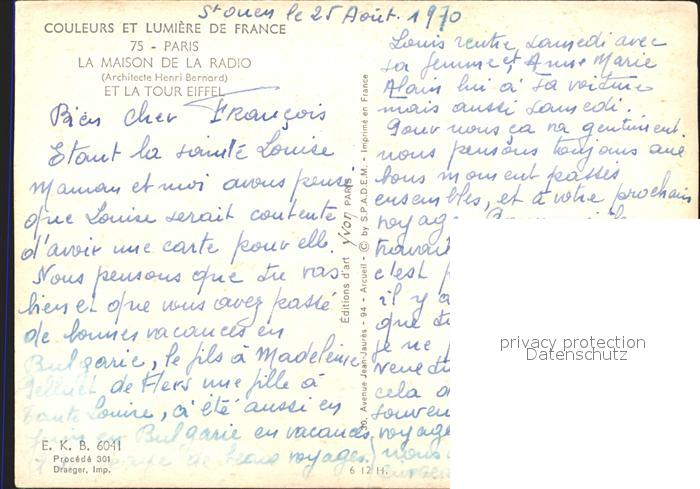 St ouen le 25 Août. 1970
COULEURS ET LUMIÈRE DE FRANCE
75 - PARIS
LA MAISON DE LA RADIO
(Architecte Henri Bernard)
ET LA TOUR EIFFEL
Bien cher François
Etant la sainte Louise
Maman et moi avons pensé
que Louise serait contente
d'avoir une carte pour elle.
Nous pensons que tu vas
bien et que vous avez passé
de bonnes vacances en
Bulgarie, le fils à Madeleine
de Flers une fille à
tante Louise, a été aussi en
en Bulgarie en vacances
de beaux voyages.)
E. K. B. 6041
Procédé 301
Draeger, Imp.
Editions d'art yvon PARIS
30, Avenue Jean-Jaurès - 94 - Arcueil - © by S.P.A.D.E.M. - Imprimé en France
6 12 H.
Louis rentre samedi avec
sa femme et Anne Marie
Alain lui a sa voiture
mais aussi samedi.
Pour nous ça va gentiment.
nous pensons toujours aux
bons moment passés
ensembles, et à votre prochain
voyage
travail
c'est
il y a
que tu
je ne
venu
cela
souven
voyage
nous
privacy protection
Datenschutz